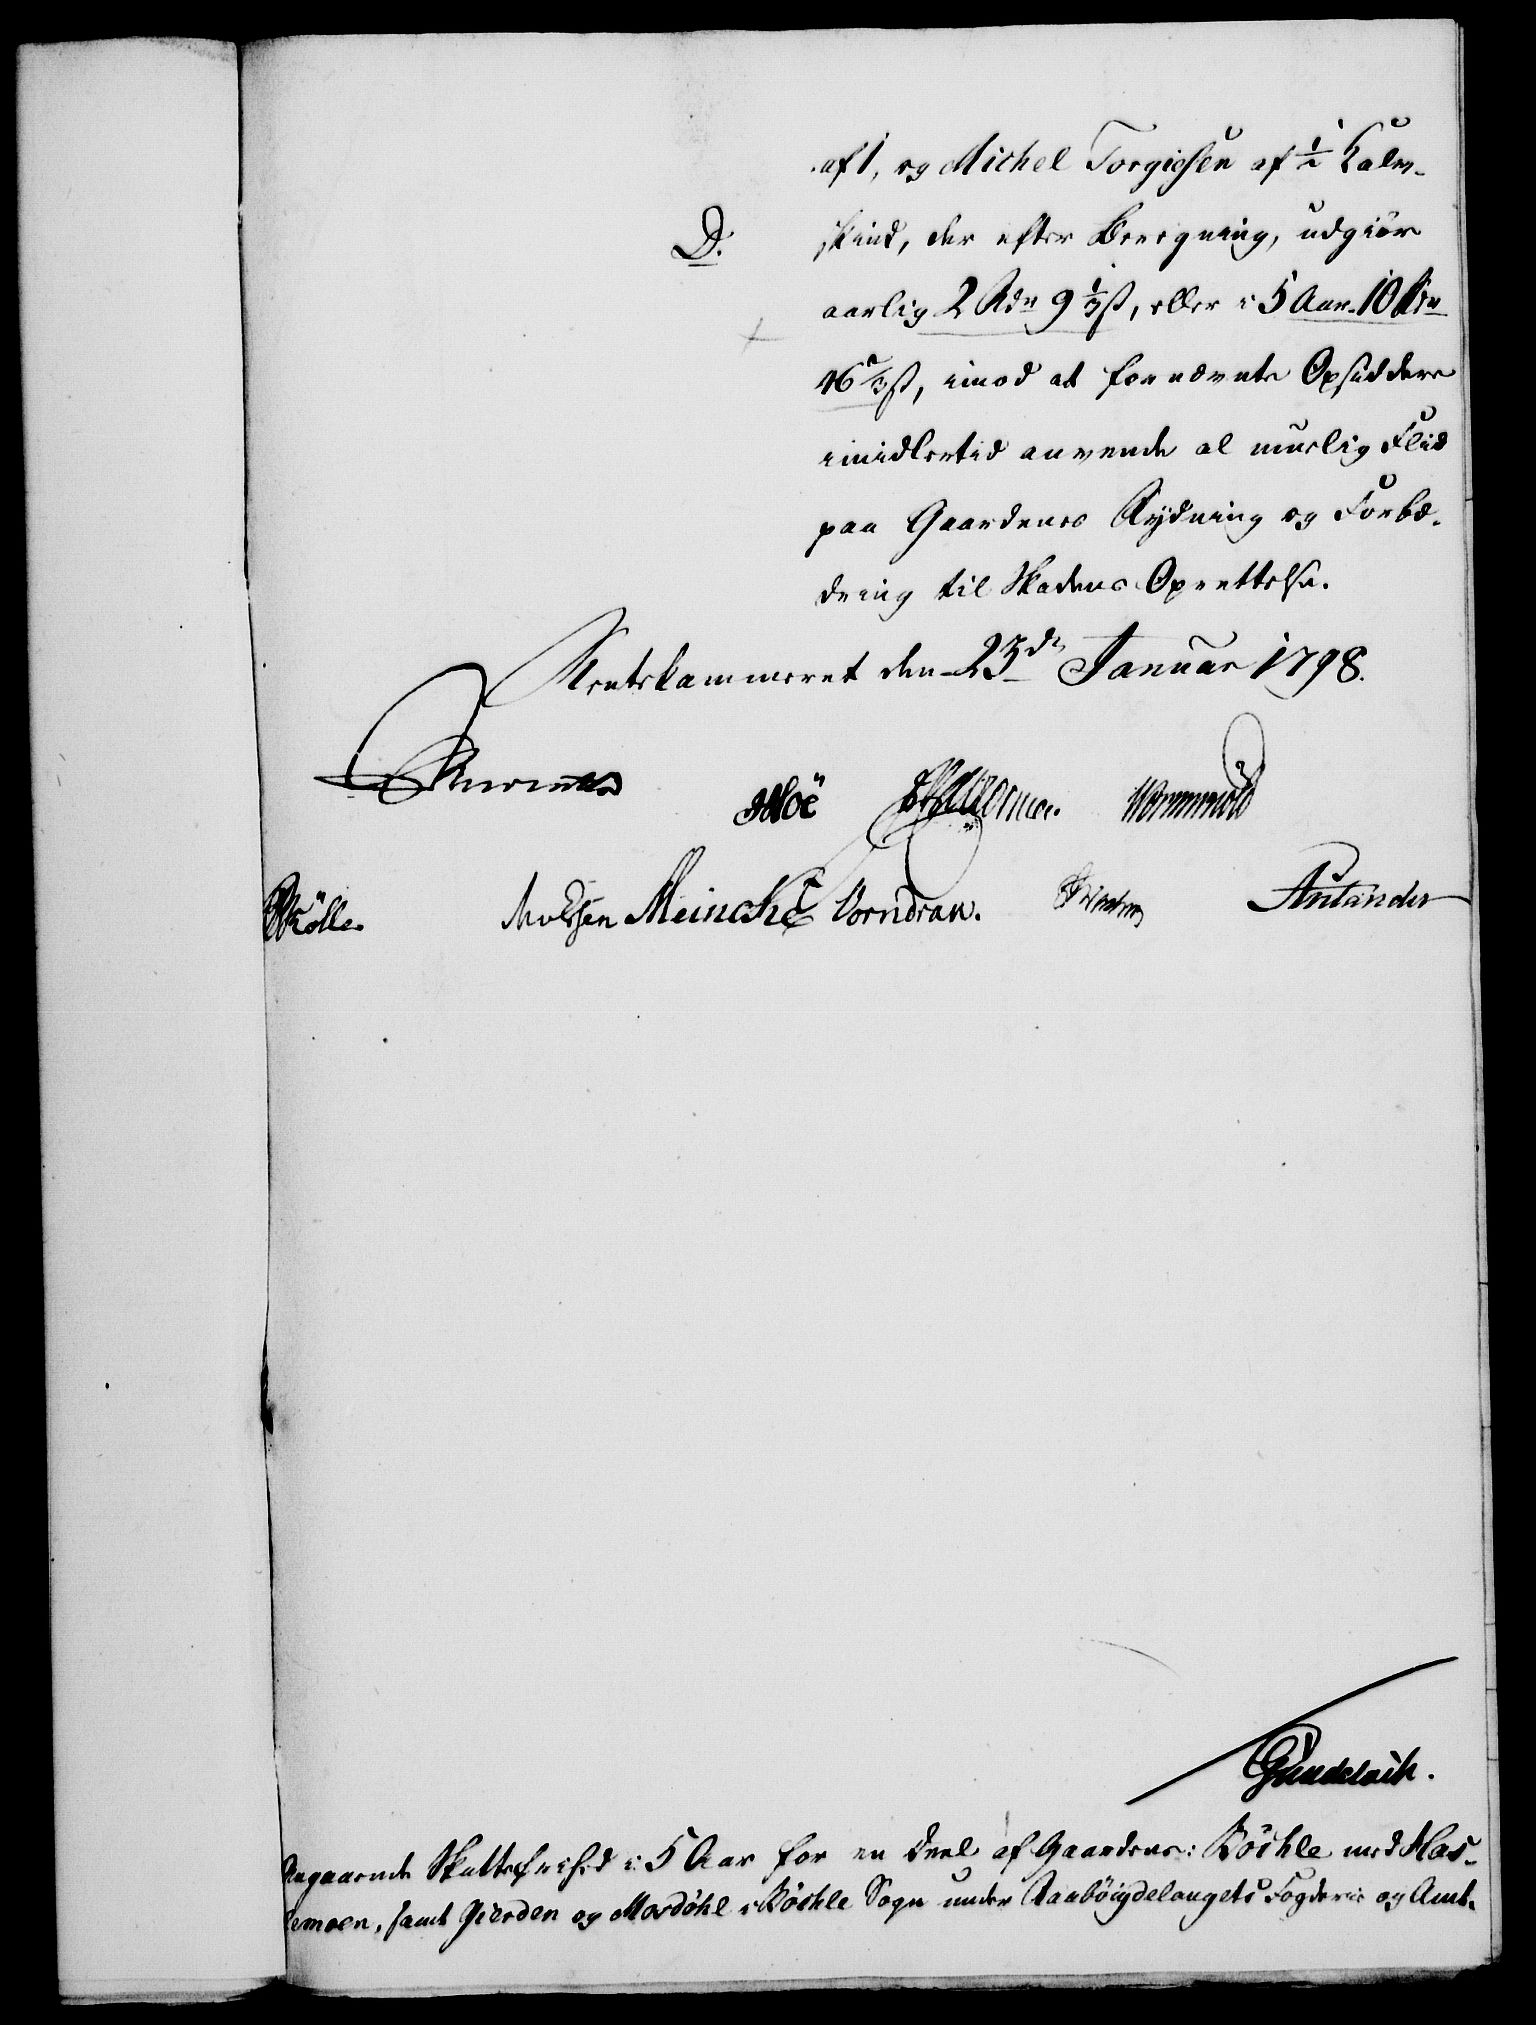 af 1, og Michel Torgiesen af ½ Kalv-
skind, der efter Beregning, udgiør
D.
aarlig 2 Rdr 9⅓ ß, eller i 5 Aar 10 Rdr
46⅔ ß, imod at fornævnte Opsiddere
imidlertid anvende al muelig Flid
paa Gaardenes Rydning og Forbe-
dring til Skadens Oprettelse.
Rentekammeret den 23de Januar 1798.
Wormskiold
Mölle. Meincke Vorndran.
Gundelach.
Angaaende Skattefrihed i 5 Aar for en Deel af Gaardene: Böihle med Has-
lemoen, samt Gierden og Mordöhl i Böihle Sogn under Raaböigdelaugets Fogderie og Amt.